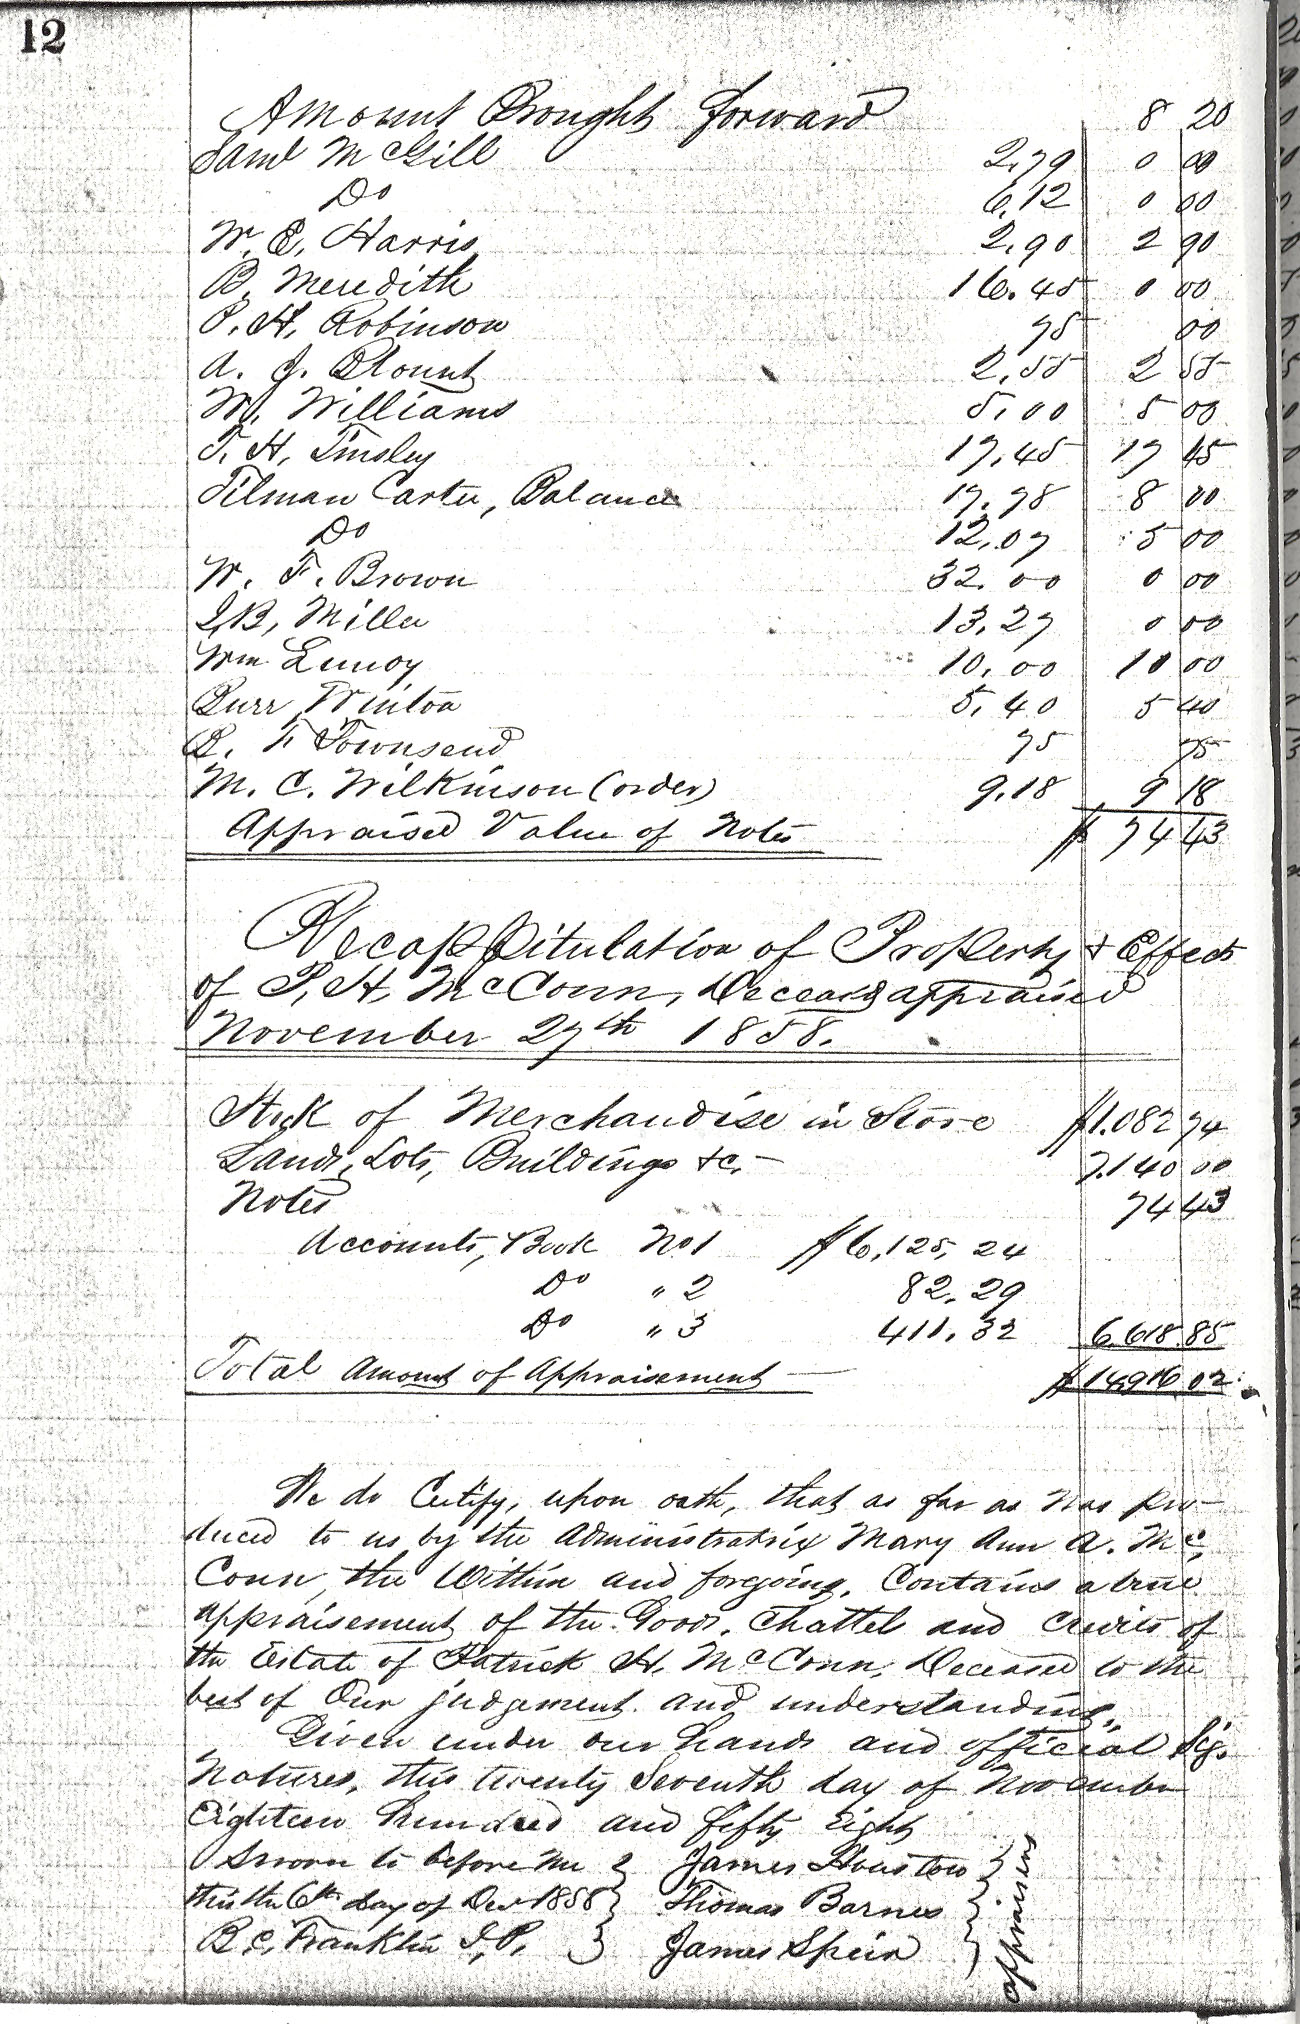 12
Amount Brought forward 8 20
Saml McGill 2,79 0 00
Do 6,12 0 00
W. E. Harris 2,90 2 90
B. Meredith 16.45 0 00
P. H. Robinson 75 00
A. J. Blount 2,55 2 55
W. Williams 5,00 5 00
T. H. Tinsley 17,45 17 45
Tilman Carter, Balance 17,78 8 00
Do 12,07 5 00
W. F. Brown 32.00 0 00
I,B, Miller 13,27 0 00
Wm 10,00 10 00
Burr Winton 5,40 5 40
B. F Townsend 75 75
M. C. Wilkinson (order) 9,18 9 18
Appraised Value of Notes $ 74 43
Recappitulation of Property & Effects
of P. H. McConn, Deceased appraised
November 27th 1858.
Stock of Merchandise in Store $1.082 74
Lands, Lots, Buildings &c,- 7.140 00
Notes 74 43
Accounts, Book No 1 $6,125,24
Do " 2 82,29
Do " 3 411.32 6.618.85
Total Amount of Appraisement — $14,916 02
We do Certify, upon oath, that as far as was pro-
duced to us by the Administratrix Mary Ann A. Mc,
Conn, the Within and foregoing, Contains a true
appraisement of the Goods, Chattels and Credits of
the Estate of Patrick H. McConn, Deceased to the
best of Our judgement and understanding,
Given under our hands and official Sig-
natures, this twenty Seventh day of November
Eighteen hundred and fifty Eight
Sworn to before me } James Houston }
this the 6th day of Decr 1858 } Thomas Barnes }
B. C. Franklin J,P, } James Speir }
appraisers